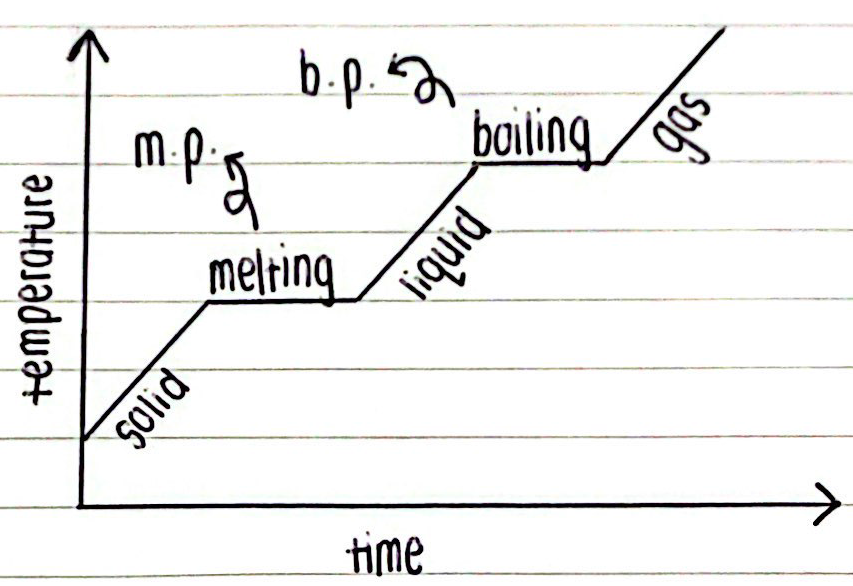 b.p.
m.p.
boiling
gas
temperature
melting
liquid
solid
time